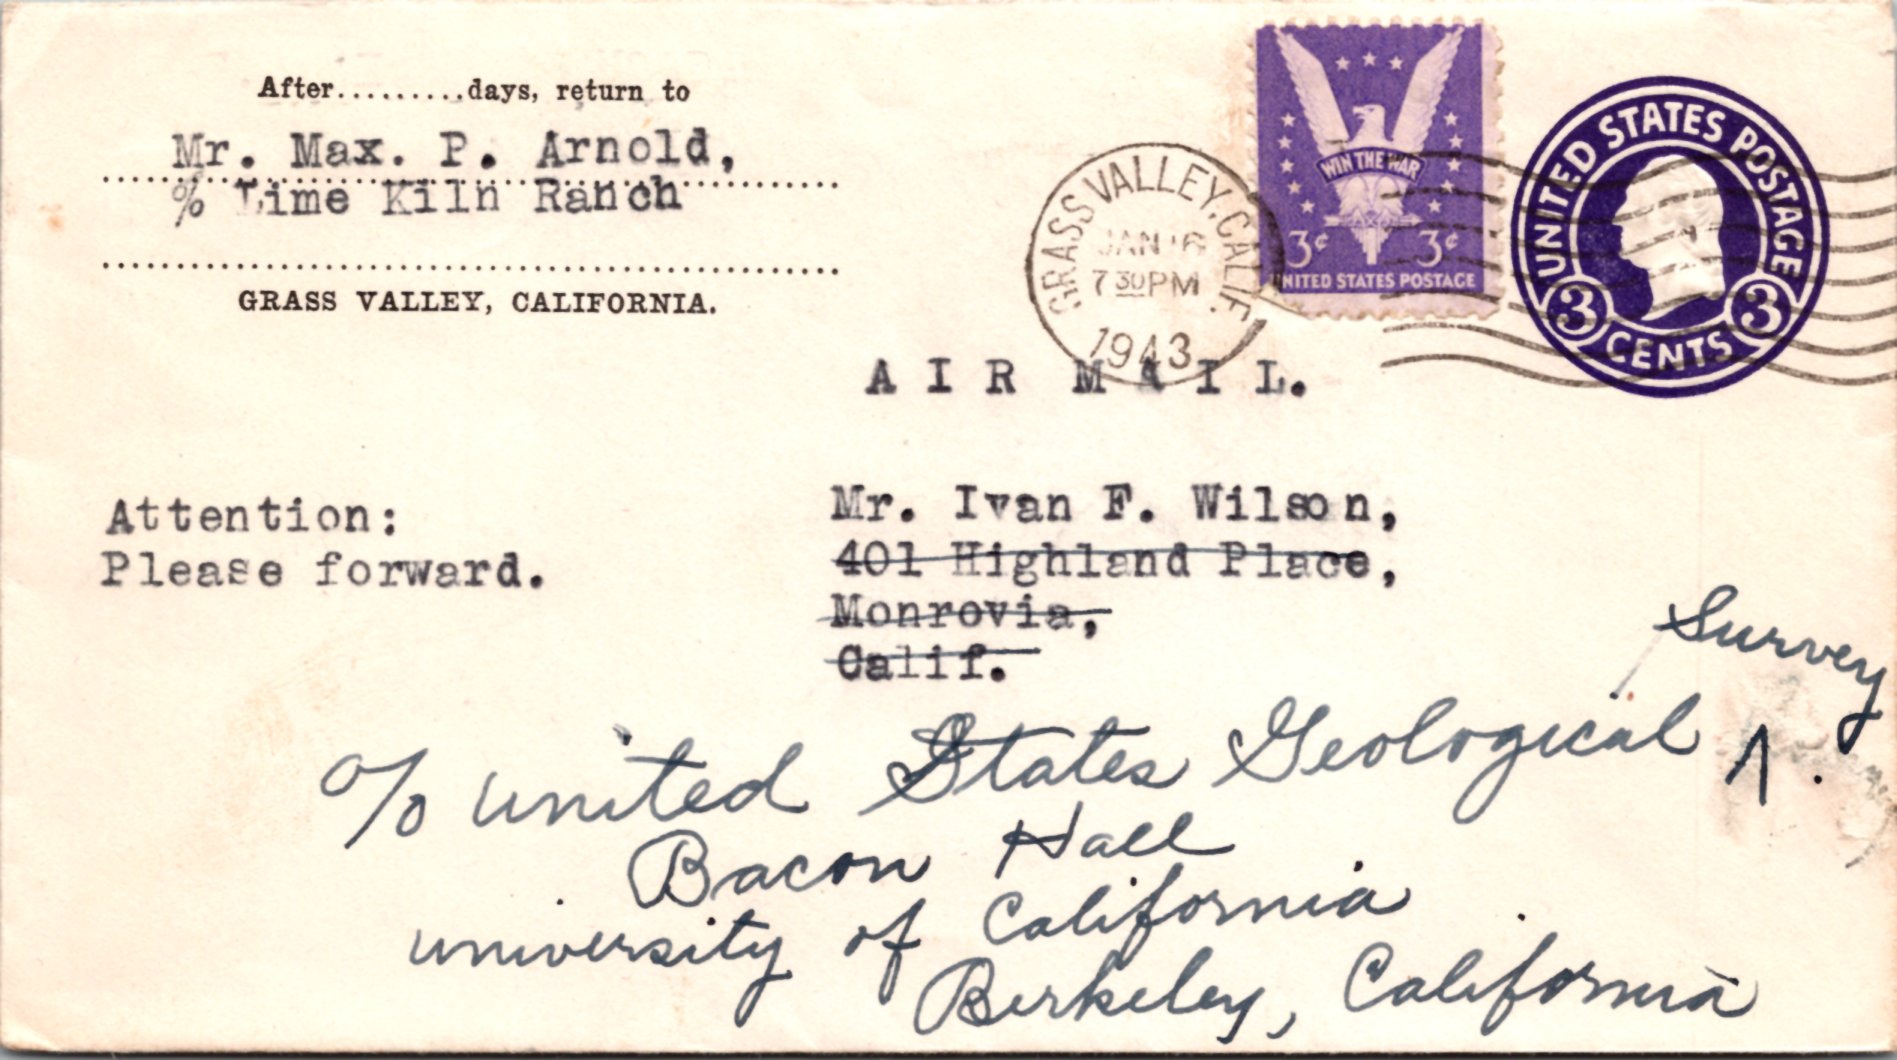 After.........days, return to
Mr. Max. P. Arnold,
% Lime Kiln Ranch
GRASS VALLEY, CALIFORNIA.
GRASS VALLEY, CALIF.
JAN 16
7 30 PM
1943
WIN THE WAR
3¢ 3¢
UNITED STATES POSTAGE
UNITED STATES POSTAGE
3 CENTS 3
AIR MAIL.
Attention:
Please forward.
Mr. Ivan F. Wilson,
401 Highland Place,
Monrovia,
Calif.
c/o United States Geological Survey.
Bacon Hall
University of California
Berkeley, California